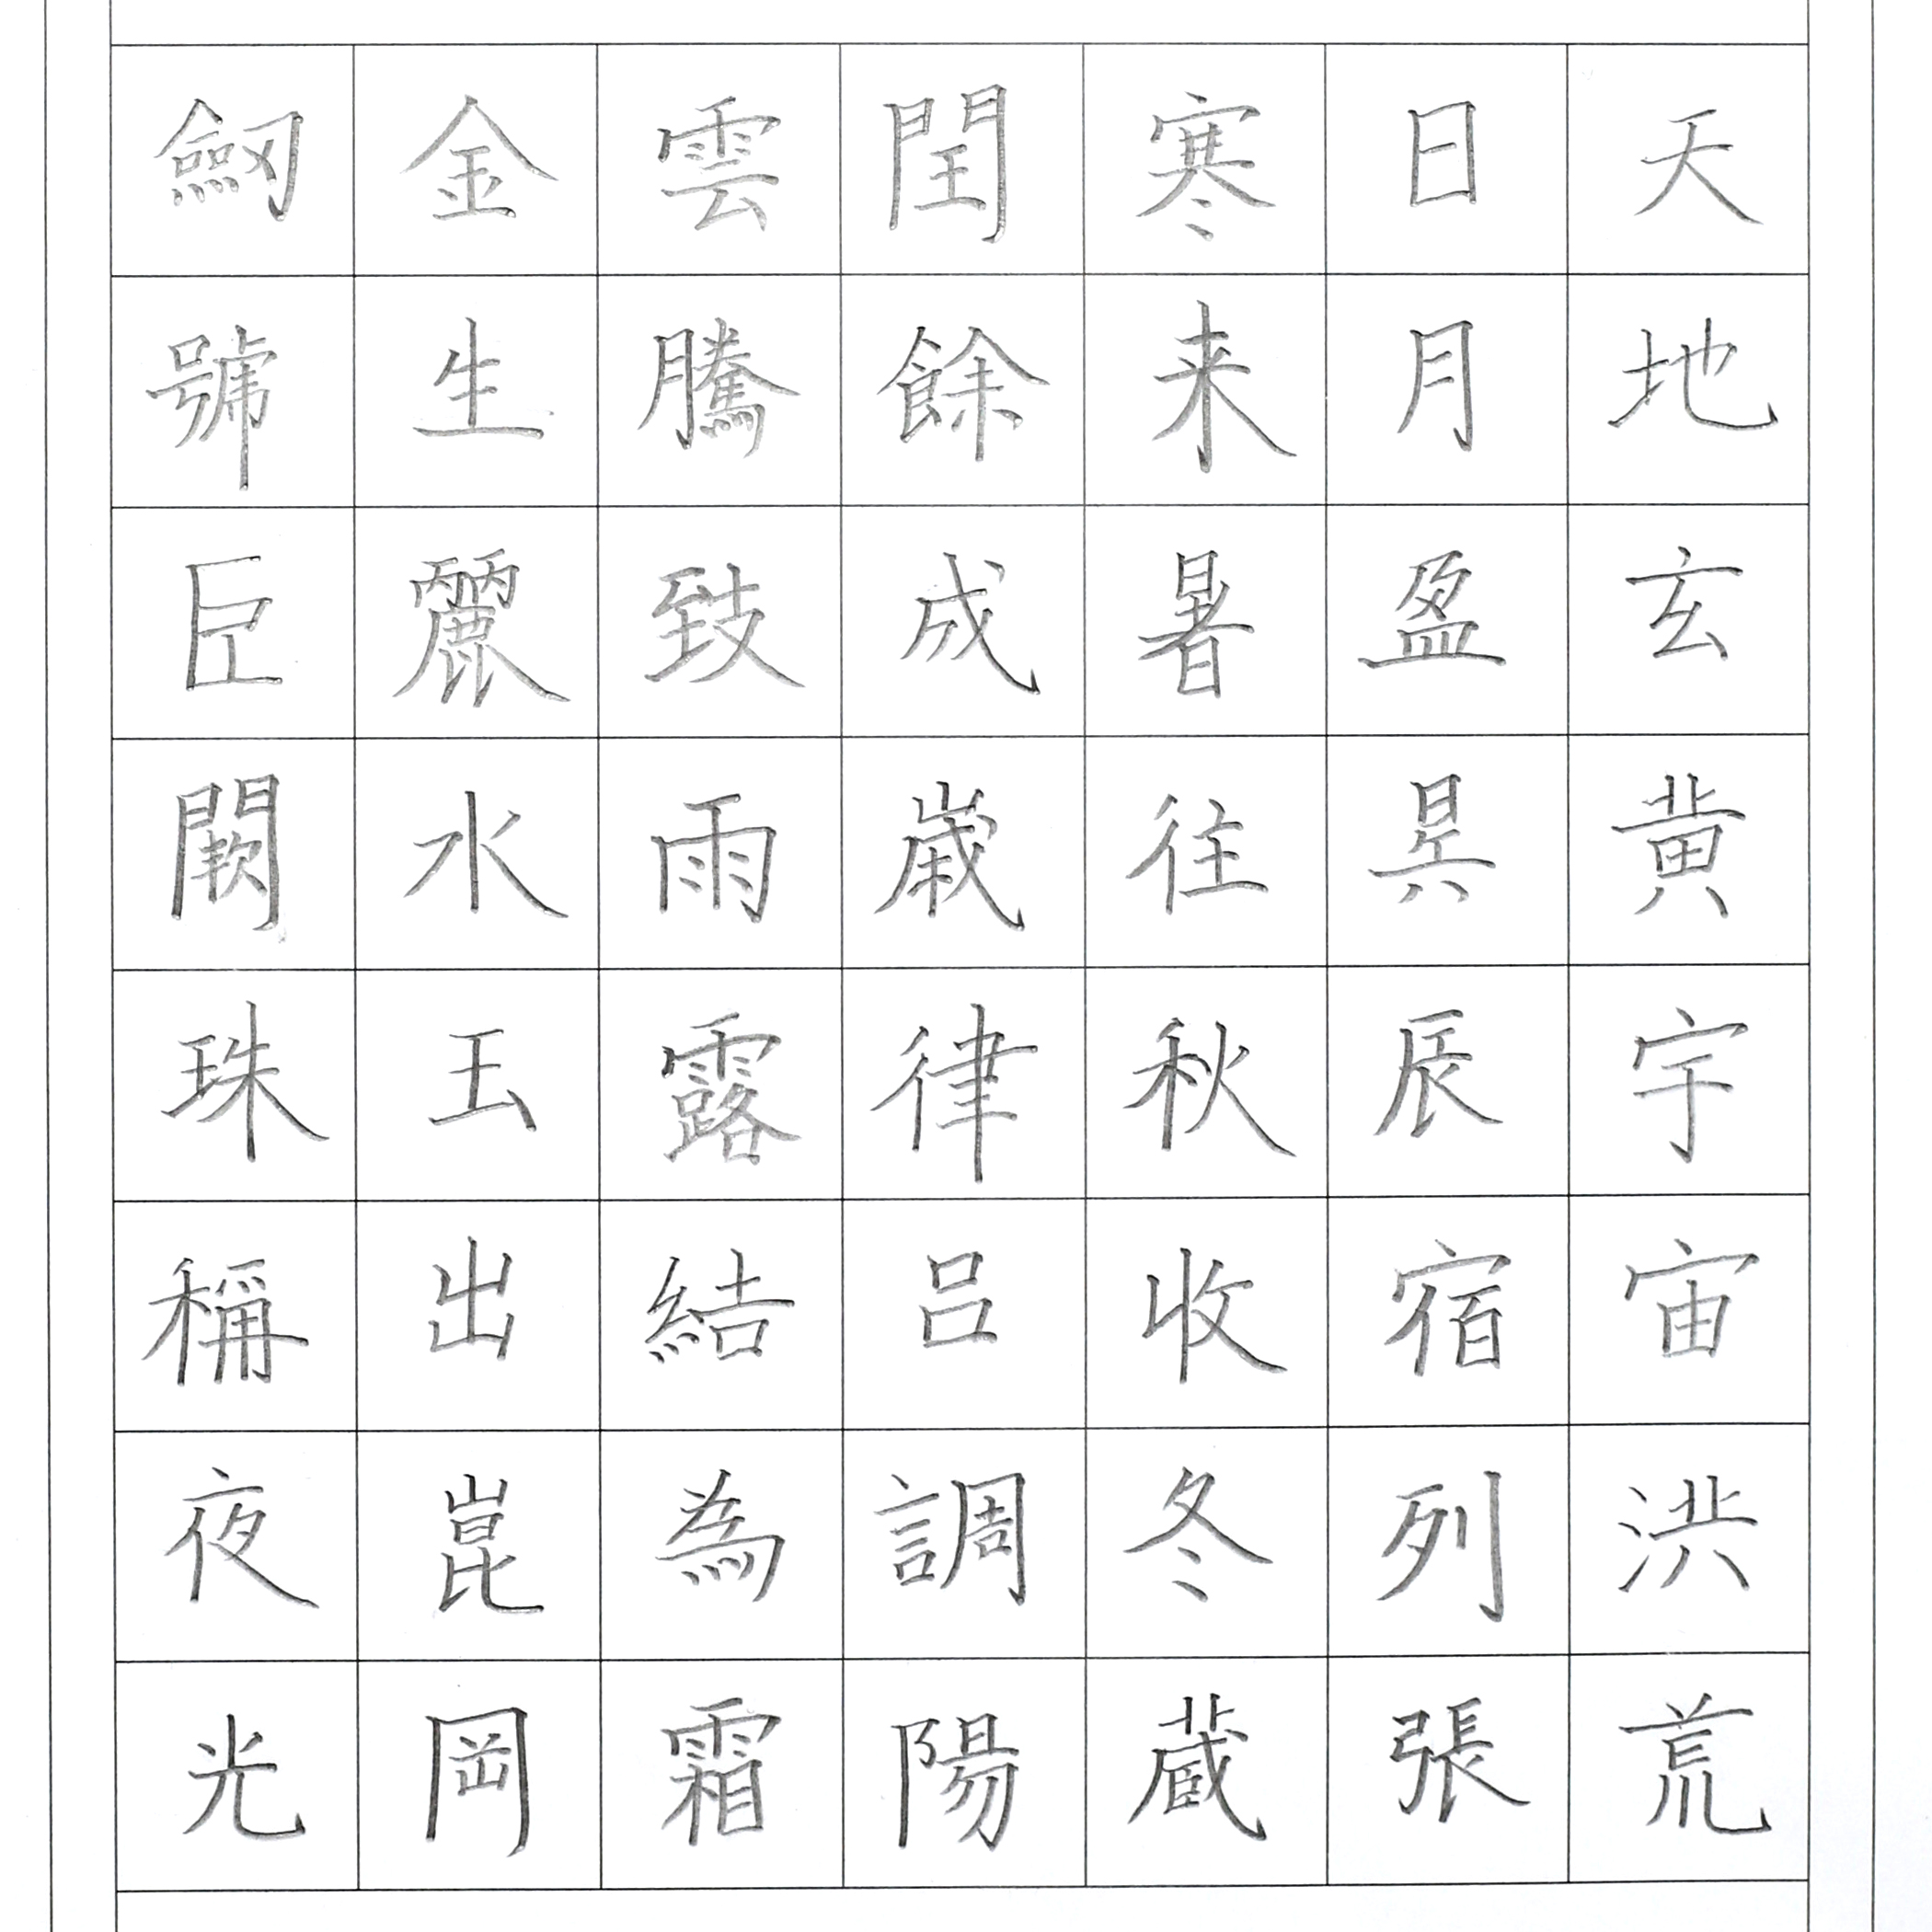 天地玄黄宇宙洪荒
日月盈昃辰宿列張
寒来暑往秋收冬蔵
閏餘成歳律呂調陽
雲騰致雨露結為霜
金生麗水玉出崑岡
劒號巨闕珠稱夜光